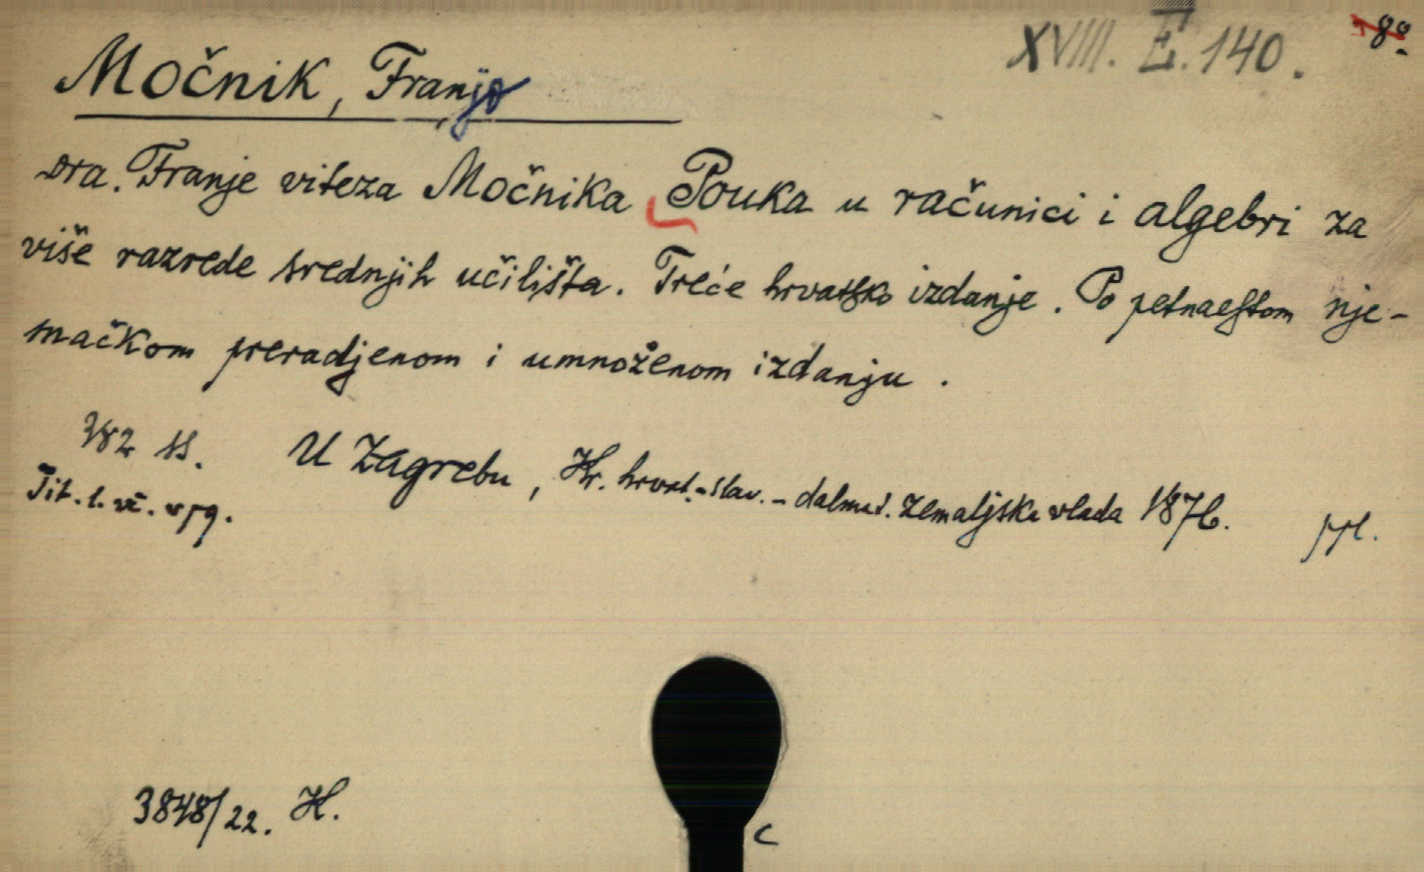 XVIII. E. 140. 8º
Močnik, Franjo
Dra. Franje viteza Močnika Pouka u računici i algebri za
više razrede srednjih učilišta. Treće hrvatsko izdanje. Po petnaestom nje-
mačkom preradjenom i umnoženom izdanju.
382 ss. U Zagrebu, Kr. hrvat.-slav.-dalmat. zemaljska vlada 1876. ppl.
Tit. l.
3848/22. H.
C